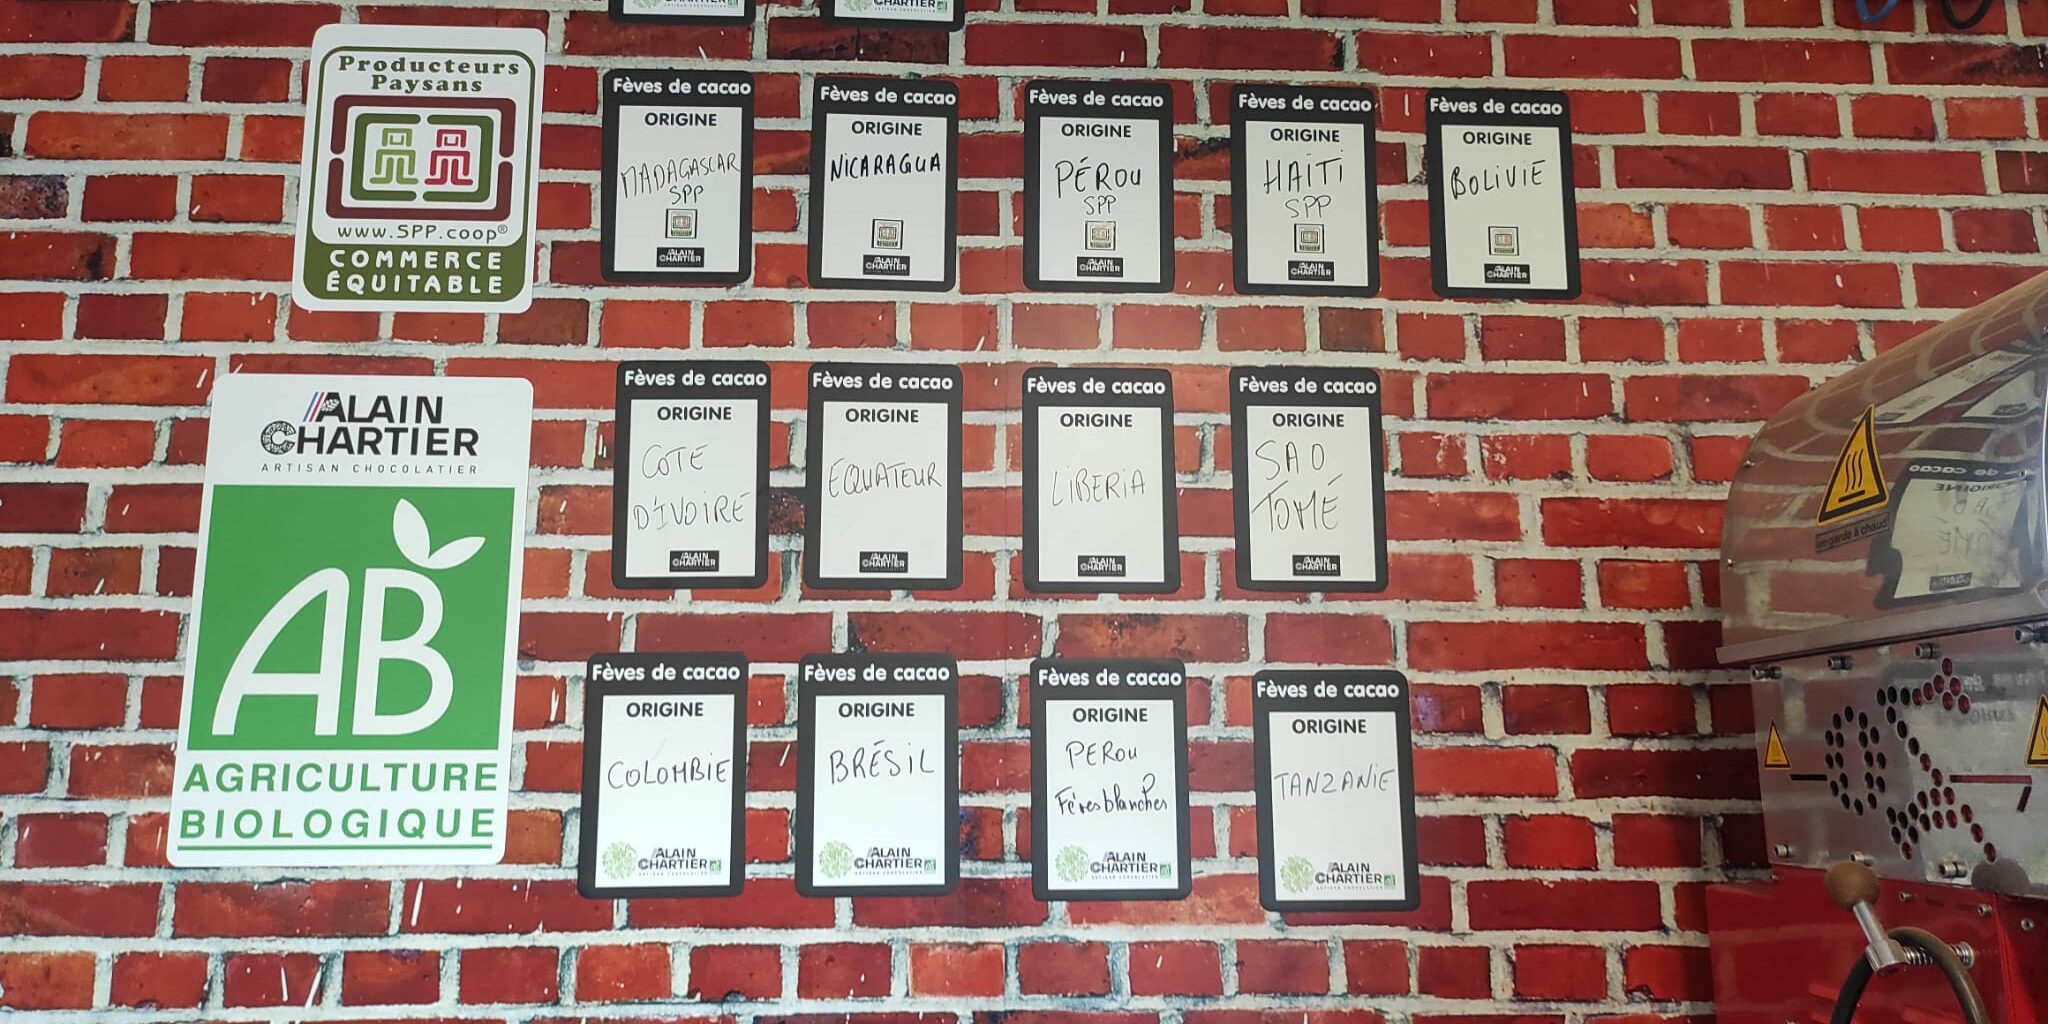 Producteurs
Paysans
www.SPP.coop®
COMMERCE
ÉQUITABLE
Fèves de cacao
ORIGINE
MADAGASCAR
SPP
ALAIN
CHARTIER
Fèves de cacao
ORIGINE
NICARAGUA
ALAIN
CHARTIER
Fèves de cacao
ORIGINE
PÉROU
SPP
ALAIN
CHARTIER
Fèves de cacao
ORIGINE
HAÏTI
SPP
ALAIN
CHARTIER
Fèves de cacao
ORIGINE
BOLIVIE
ALAIN
CHARTIER
ALAIN
CHARTIER
ARTISAN CHOCOLATIER
AB
AGRICULTURE
BIOLOGIQUE
Fèves de cacao
ORIGINE
COTE
D'IVOIRE
ALAIN
CHARTIER
Fèves de cacao
ORIGINE
EQUATEUR
ALAIN
CHARTIER
Fèves de cacao
ORIGINE
LIBERIA
ALAIN
CHARTIER
Fèves de cacao
ORIGINE
SAO
TOMÉ
ALAIN
CHARTIER
Fèves de cacao
ORIGINE
COLOMBIE
ALAIN
CHARTIER
ARTISAN CHOCOLATIER
Fèves de cacao
ORIGINE
BRÉSIL
ALAIN
CHARTIER
ARTISAN CHOCOLATIER
Fèves de cacao
ORIGINE
PEROU
Fèves blanches
ALAIN
CHARTIER
ARTISAN CHOCOLATIER
Fèves de cacao
ORIGINE
TANZANIE
ALAIN
CHARTIER
ARTISAN CHOCOLATIER
en garde à chaud